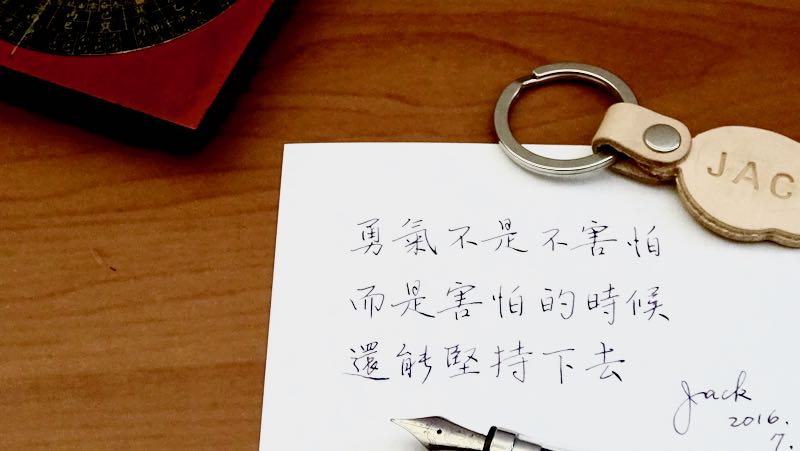 JAC
勇氣不是不害怕
而是害怕的時候
還能堅持下去
Jack
2016.
7.